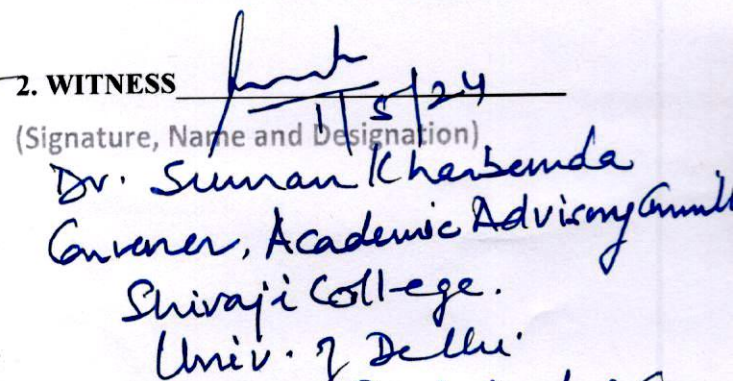 2. WITNESS
1/5/24
(Signature, Name and Designation)
Dr. Suman Kharbanda
Convener, Academic Advisory
Shivaji College.
Univ. of Delhi.